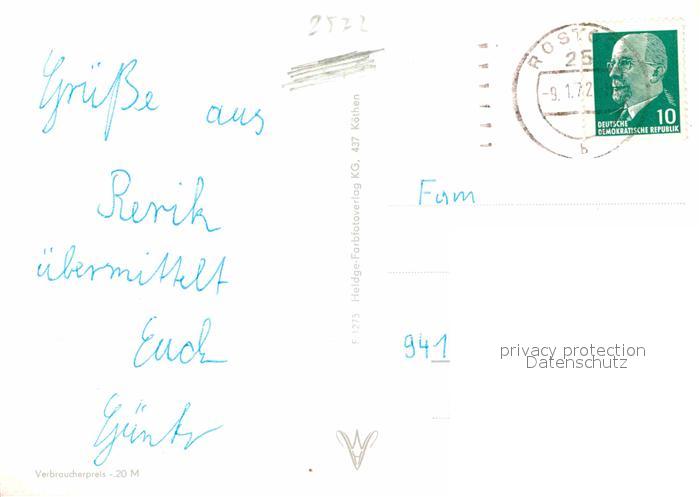 2572
Grüße aus
Rerik
übermittelt
Euch
Günter
Verbraucherpreis -.20 M
F 1275 Heldge-Farbfotoverlag KG, 437 Köthen
ROSTO
25
-9.1.72
b
DEUTSCHE
DEMOKRATISCHE REPUBLIK
10
Fam
941
privacy protection
Datenschutz